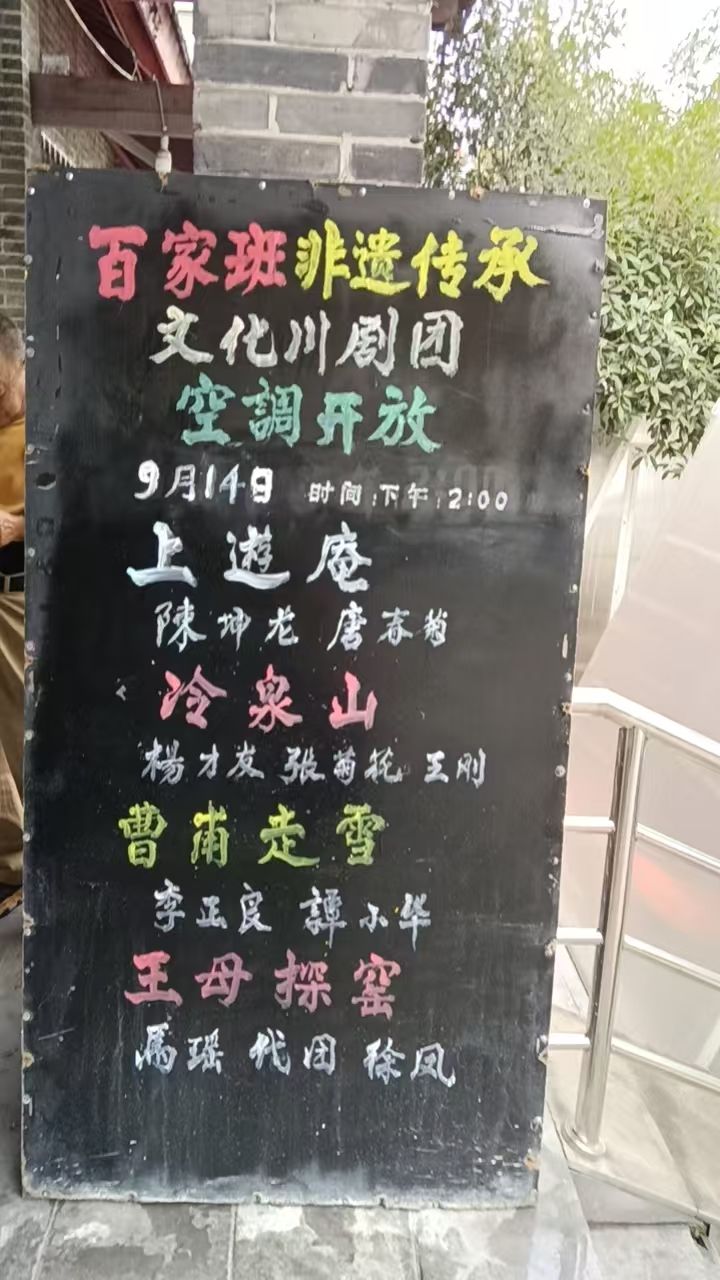 百家班非遗传承
文化川剧团
空調开放
9月14日 时间:下午:2:00
上遊庵
陳坤龙 唐春菊
冷泉山
楊才发 张菊花 王刚
曹甫走雪
李正良 譚小华
王母探窑
馬瑶 代团 徐凤